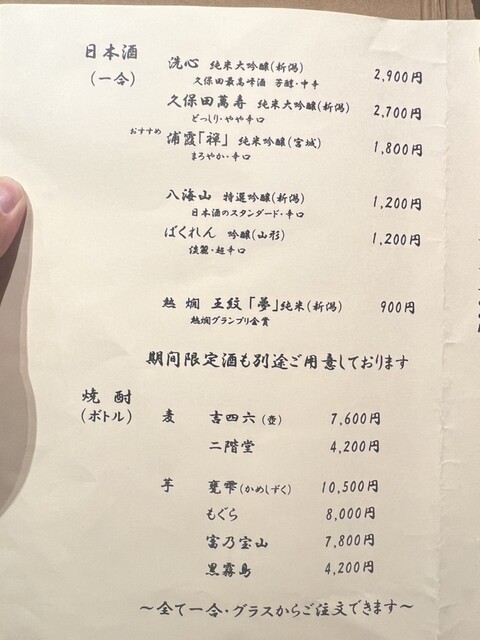 日本酒
(一合)
洗心 純米大吟醸(新潟) 2,900円
久保田最高峰酒 芳醇・中辛
久保田萬寿 純米大吟醸(新潟) 2,700円
どっしり・やや辛口
おすすめ 浦霞「禅」 純米吟醸(宮城) 1,800円
まろやか・辛口
八海山 特選吟醸(新潟) 1,200円
日本酒のスタンダード・辛口
ばくれん 吟醸(山形) 1,200円
淡麗・超辛口
熱燗 王紋「夢」純米(新潟) 900円
熱燗グランプリ金賞
期間限定酒も別途ご用意しております
焼酎
(ボトル)
麦 吉四六(壺) 7,600円
二階堂 4,200円
芋 甕雫(かめしずく) 10,500円
もぐら 8,000円
富乃宝山 7,800円
黒霧島 4,200円
〜全て一合・グラスからご注文できます〜